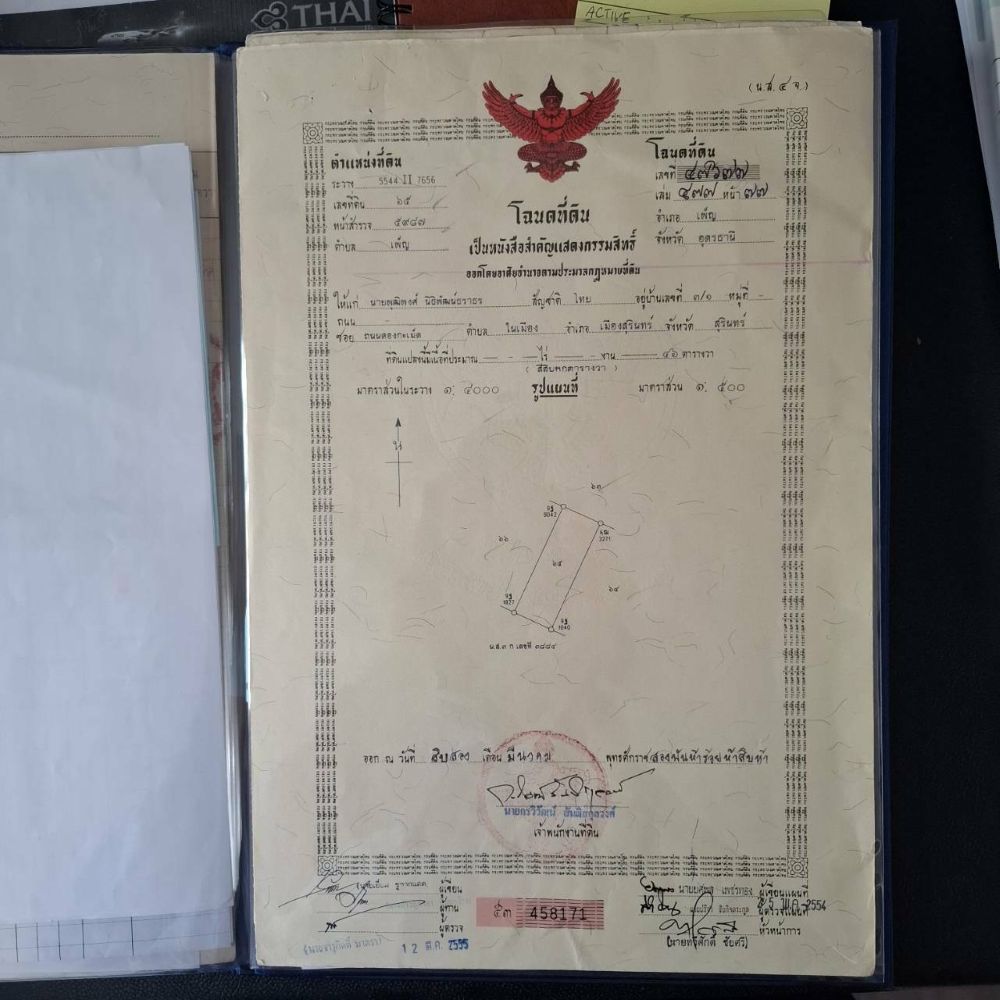 THAI
ACTIVE
(น.ส. ๔ จ.)
ตำแหน่งที่ดิน
ระวาง 5544 II 7656
เลขที่ดิน ๖๕
หน้าสำรวจ ๕๙๘๗
ตำบล เพ็ญ
โฉนดที่ดิน
เลขที่ ๔๗๖๓๗
เล่ม ๔๗๗ หน้า ๓๗
อำเภอ เพ็ญ
จังหวัด อุดรธานี
โฉนดที่ดิน
เป็นหนังสือสำคัญแสดงกรรมสิทธิ์
ออกโดยอาศัยอำนาจตามประมวลกฎหมายที่ดิน
ให้แก่ นายพุฒิพงศ์ นิธิพัฒน์ธราธร สัญชาติ ไทย อยู่บ้านเลขที่ ๓/๑ หมู่ที่ -
ถนน -
ซอย ถนนตองกะเม็ด ตำบล ในเมือง อำเภอ เมืองสุรินทร์ จังหวัด สุรินทร์
ที่ดินแปลงนี้มีเนื้อที่ประมาณ - ไร่ - งาน ๔๖ ตารางวา
( สี่สิบหกตารางวา )
มาตราส่วนในระวาง ๑: ๔๐๐๐ รูปแผนที่ มาตราส่วน ๑: ๕๐๐
น
๖๓
๖๖
๖๕
๖๔
น.ส.๓ ก เลขที่ ๓๘๘๔
ออก ณ วันที่ สิบสอง เดือน มีนาคม พุทธศักราช สองพันห้าร้อยห้าสิบห้า
เจ้าพนักงานที่ดิน
ผู้เขียน
ผู้ทาน
ผู้ตรวจ
12 มี.ค. 2555
๕๓ 458171
ผู้เขียนแผนที่
ผู้ตรวจแผนที่
2554
หัวหน้าการ
(นายทวีศักดิ์ ชัยศรี)